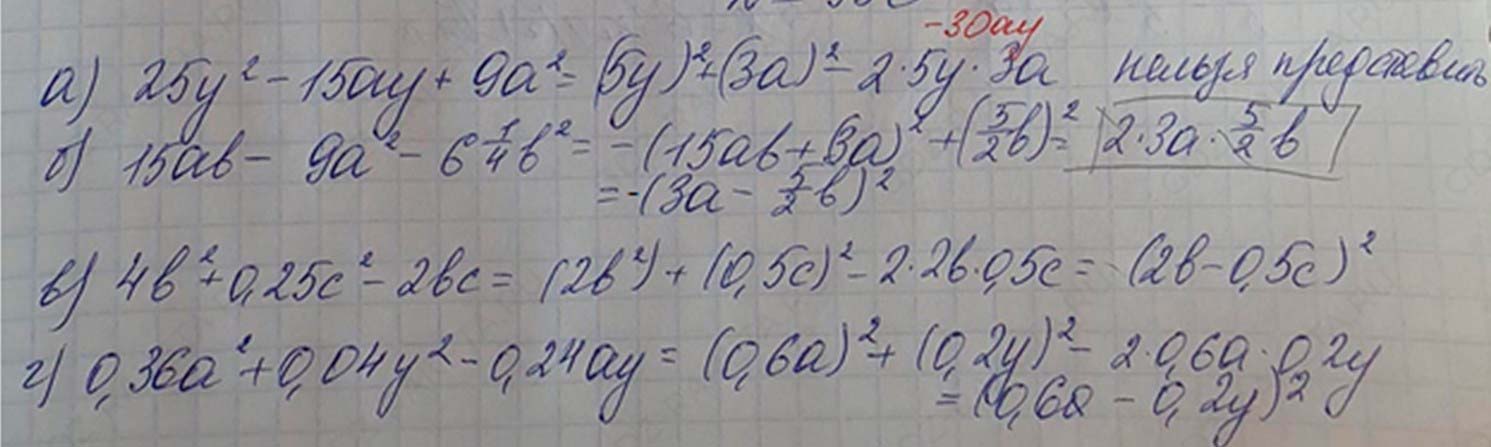 -30ay
а) 25y² - 15ay + 9a² = (5y)² + (3a)² - 2·5y·3a нельзя представить
б) 15ab - 9a² - 6 1/4 b² = -(15ab + 3a)² + (5/2 b)² = 2·3a·5/2 b
= -(3a - 5/2 b)²
в) 4b² + 0,25c² - 2bc = (2b²) + (0,5c)² - 2·2b·0,5c = (2b - 0,5c)²
г) 0,36a² + 0,04y² - 0,24ay = (0,6a)² + (0,2y)² - 2·0,6a·0,2y
= (0,6a - 0,2y)²